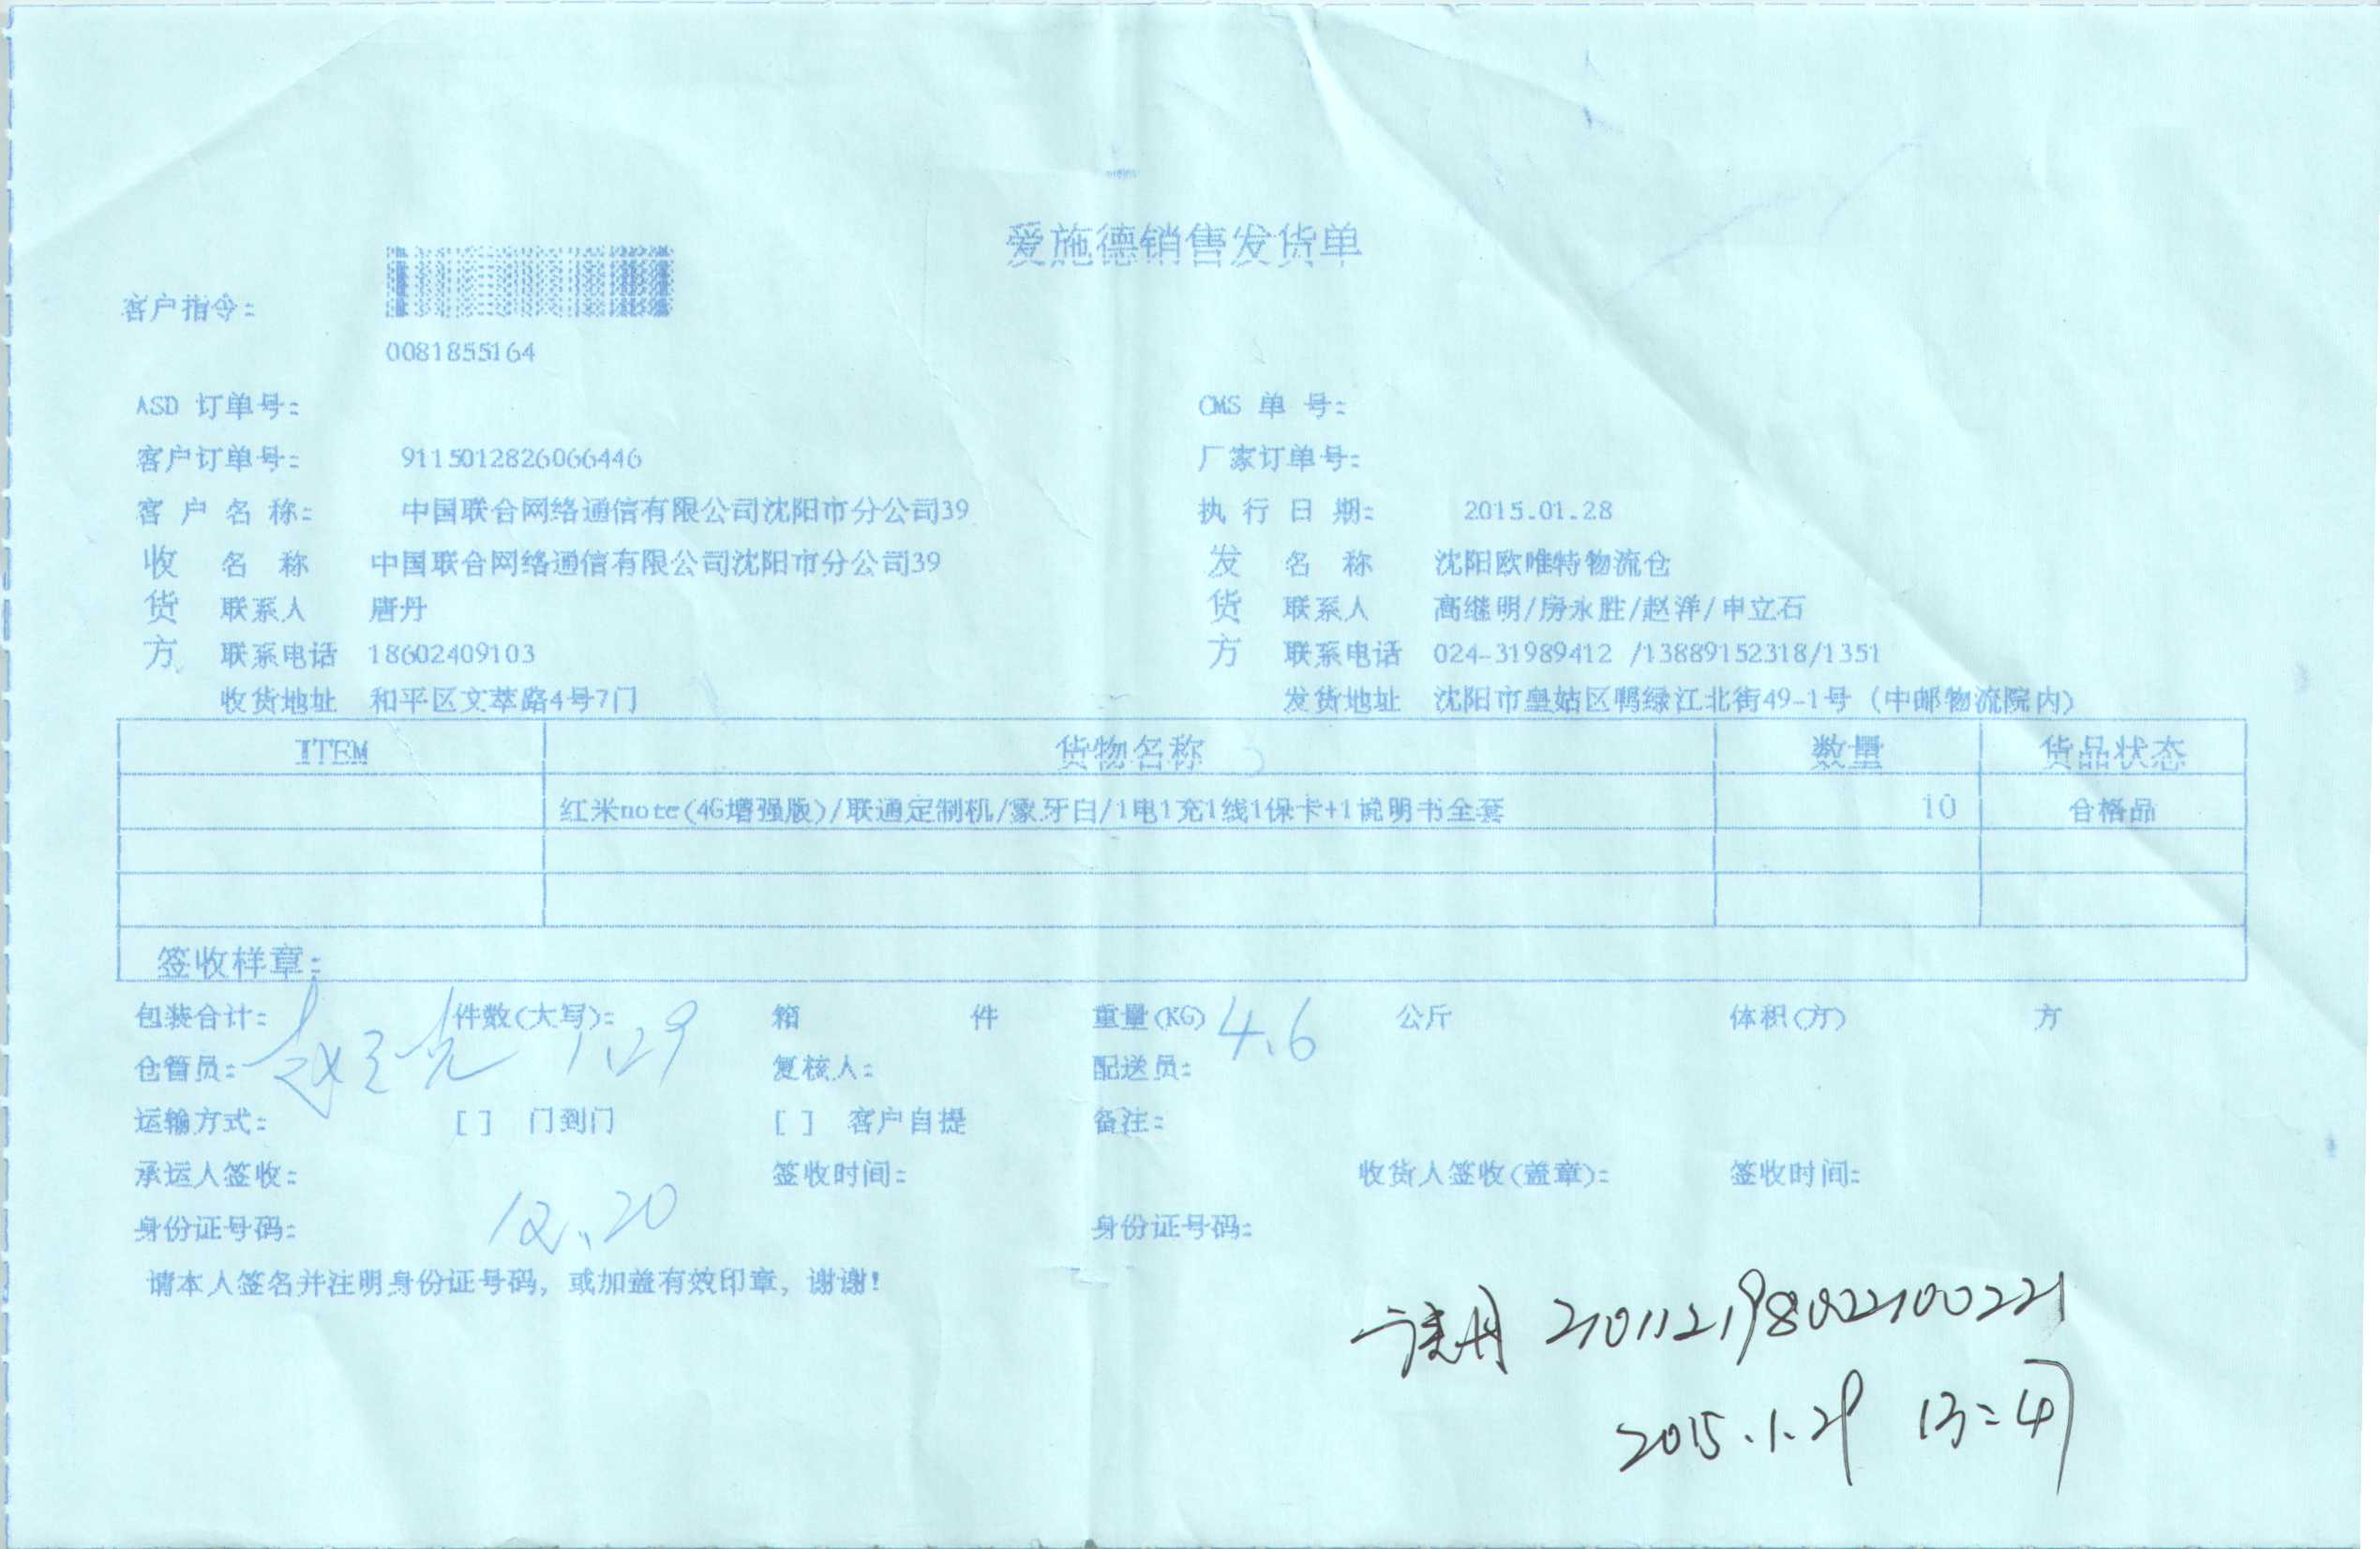 爱施德销售发货单
客户指令:
0081855164
ASD 订单号: CMS 单 号:
客户订单号: 9115012826066446 厂家订单号:
客 户 名 称: 中国联合网络通信有限公司沈阳市分公司39 执 行 日 期: 2015.01.28
收 名 称 中国联合网络通信有限公司沈阳市分公司39 发 名 称 沈阳欧唯特物流仓
货 联系人 唐丹 货 联系人 高继明/房永胜/赵洋/申立石
方 联系电话 18602409103 方 联系电话 024-31989412 /13889152318/1351
收货地址 和平区文萃路4号7门 发货地址 沈阳市皇姑区鸭绿江北街49-1号 (中邮物流院内)
ITEM 货物名称 数量 货品状态
红米note(4G增强版)/联通定制机/象牙白/1电1充1线1保卡+1说明书全套 10 合格品
签收样章:
包装合计: 件数(大写): 箱 件 重量(KG) 4.6 公斤 体积(方) 方
仓管员: 1.29 复核人: 配送员:
运输方式: [ ] 门到门 [ ] 客户自提 备注:
承运人签收: 签收时间: 收货人签收(盖章): 签收时间:
身份证号码: 12.20 身份证号码:
请本人签名并注明身份证号码, 或加盖有效印章, 谢谢!
210112198002100221
2015.1.29 13:47